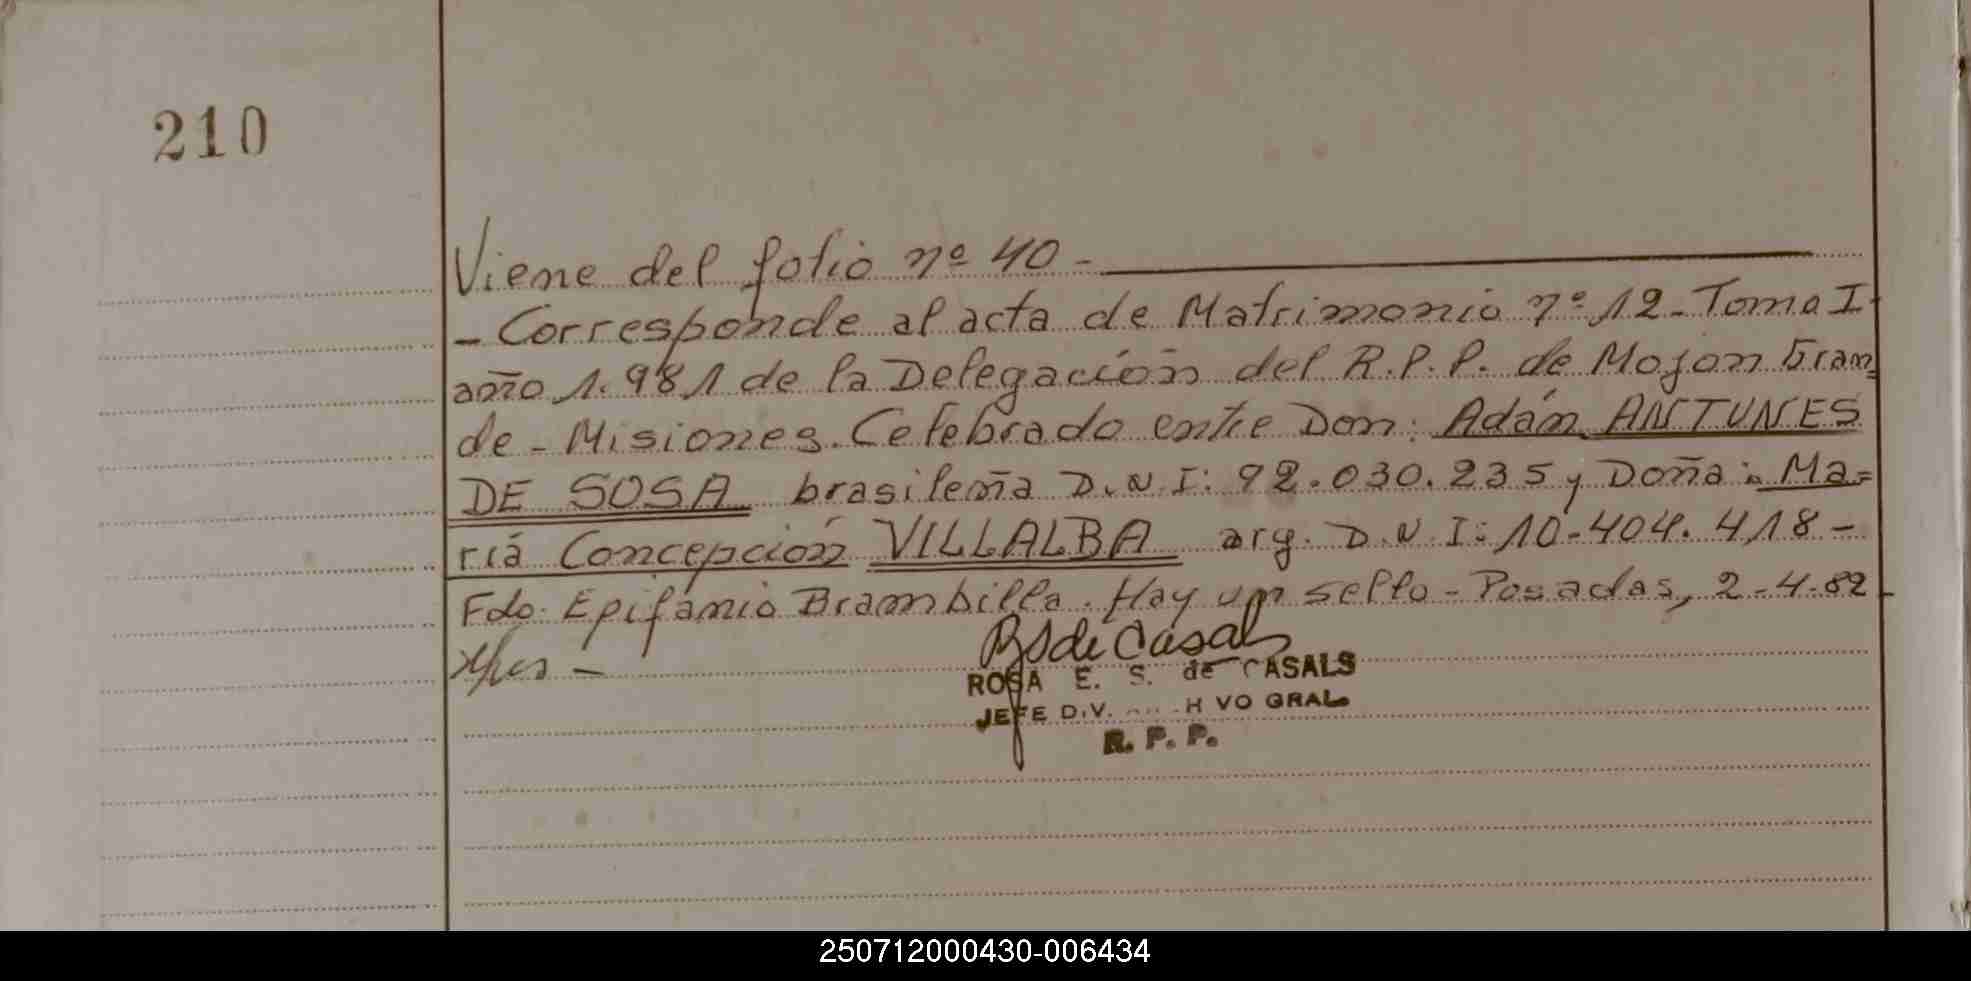 210
Viene del folio nº 40 -
- Corresponde al acta de Matrimonio nº 12 - Tomo I -
año 1.981 de la Delegación del R.P.P. de Mojon Gran=
de - Misiones. Celebrado entre Don: Adán ANTUNES
DE SOSA brasileña D.N.I: 92.030.235 y Doña: Ma=
ría Concepción VILLALBA arg. D.N.I: 10.404.418 -
Fdo. Epifanio Brambilla. Hay un sello - Posadas, 2-4-82
RS de Casals
ROSA E. S. de CASALS
JEFE DIV. GRAL.
R. P. P.
250712000430-006434